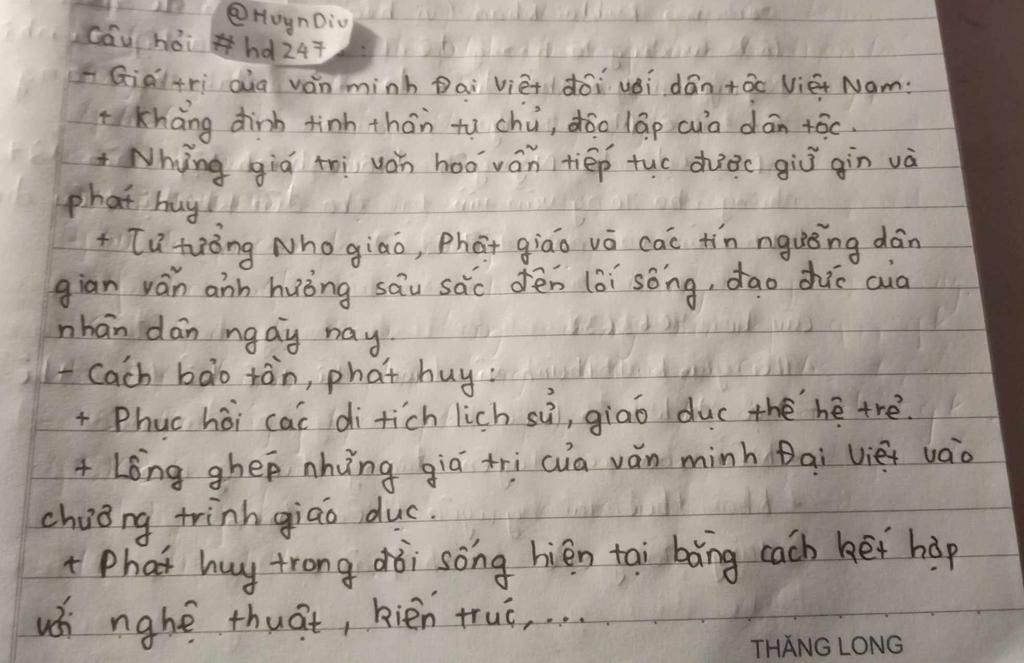 @HuynDiu
Câu hỏi #hd247 :
- Giá trị của văn minh Đại Việt đối với dân tộc Việt Nam:
+ Khẳng định tinh thần tự chủ, độc lập của dân tộc.
+ Những giá trị văn hoá vẫn tiếp tục được giữ gìn và
phát huy
+ Tư tưởng Nho giáo, Phật giáo và các tín ngưỡng dân
gian vẫn ảnh hưởng sâu sắc đến lối sống, đạo đức của
nhân dân ngày nay.
- Cách bảo tồn, phát huy:
+ Phục hồi các di tích lịch sử, giáo dục thế hệ trẻ.
+ Lồng ghép những giá trị của văn minh Đại Việt vào
chương trình giáo dục.
+ Phát huy trong đời sống hiện tại bằng cách kết hợp
với nghệ thuật, kiến trúc,...
THĂNG LONG